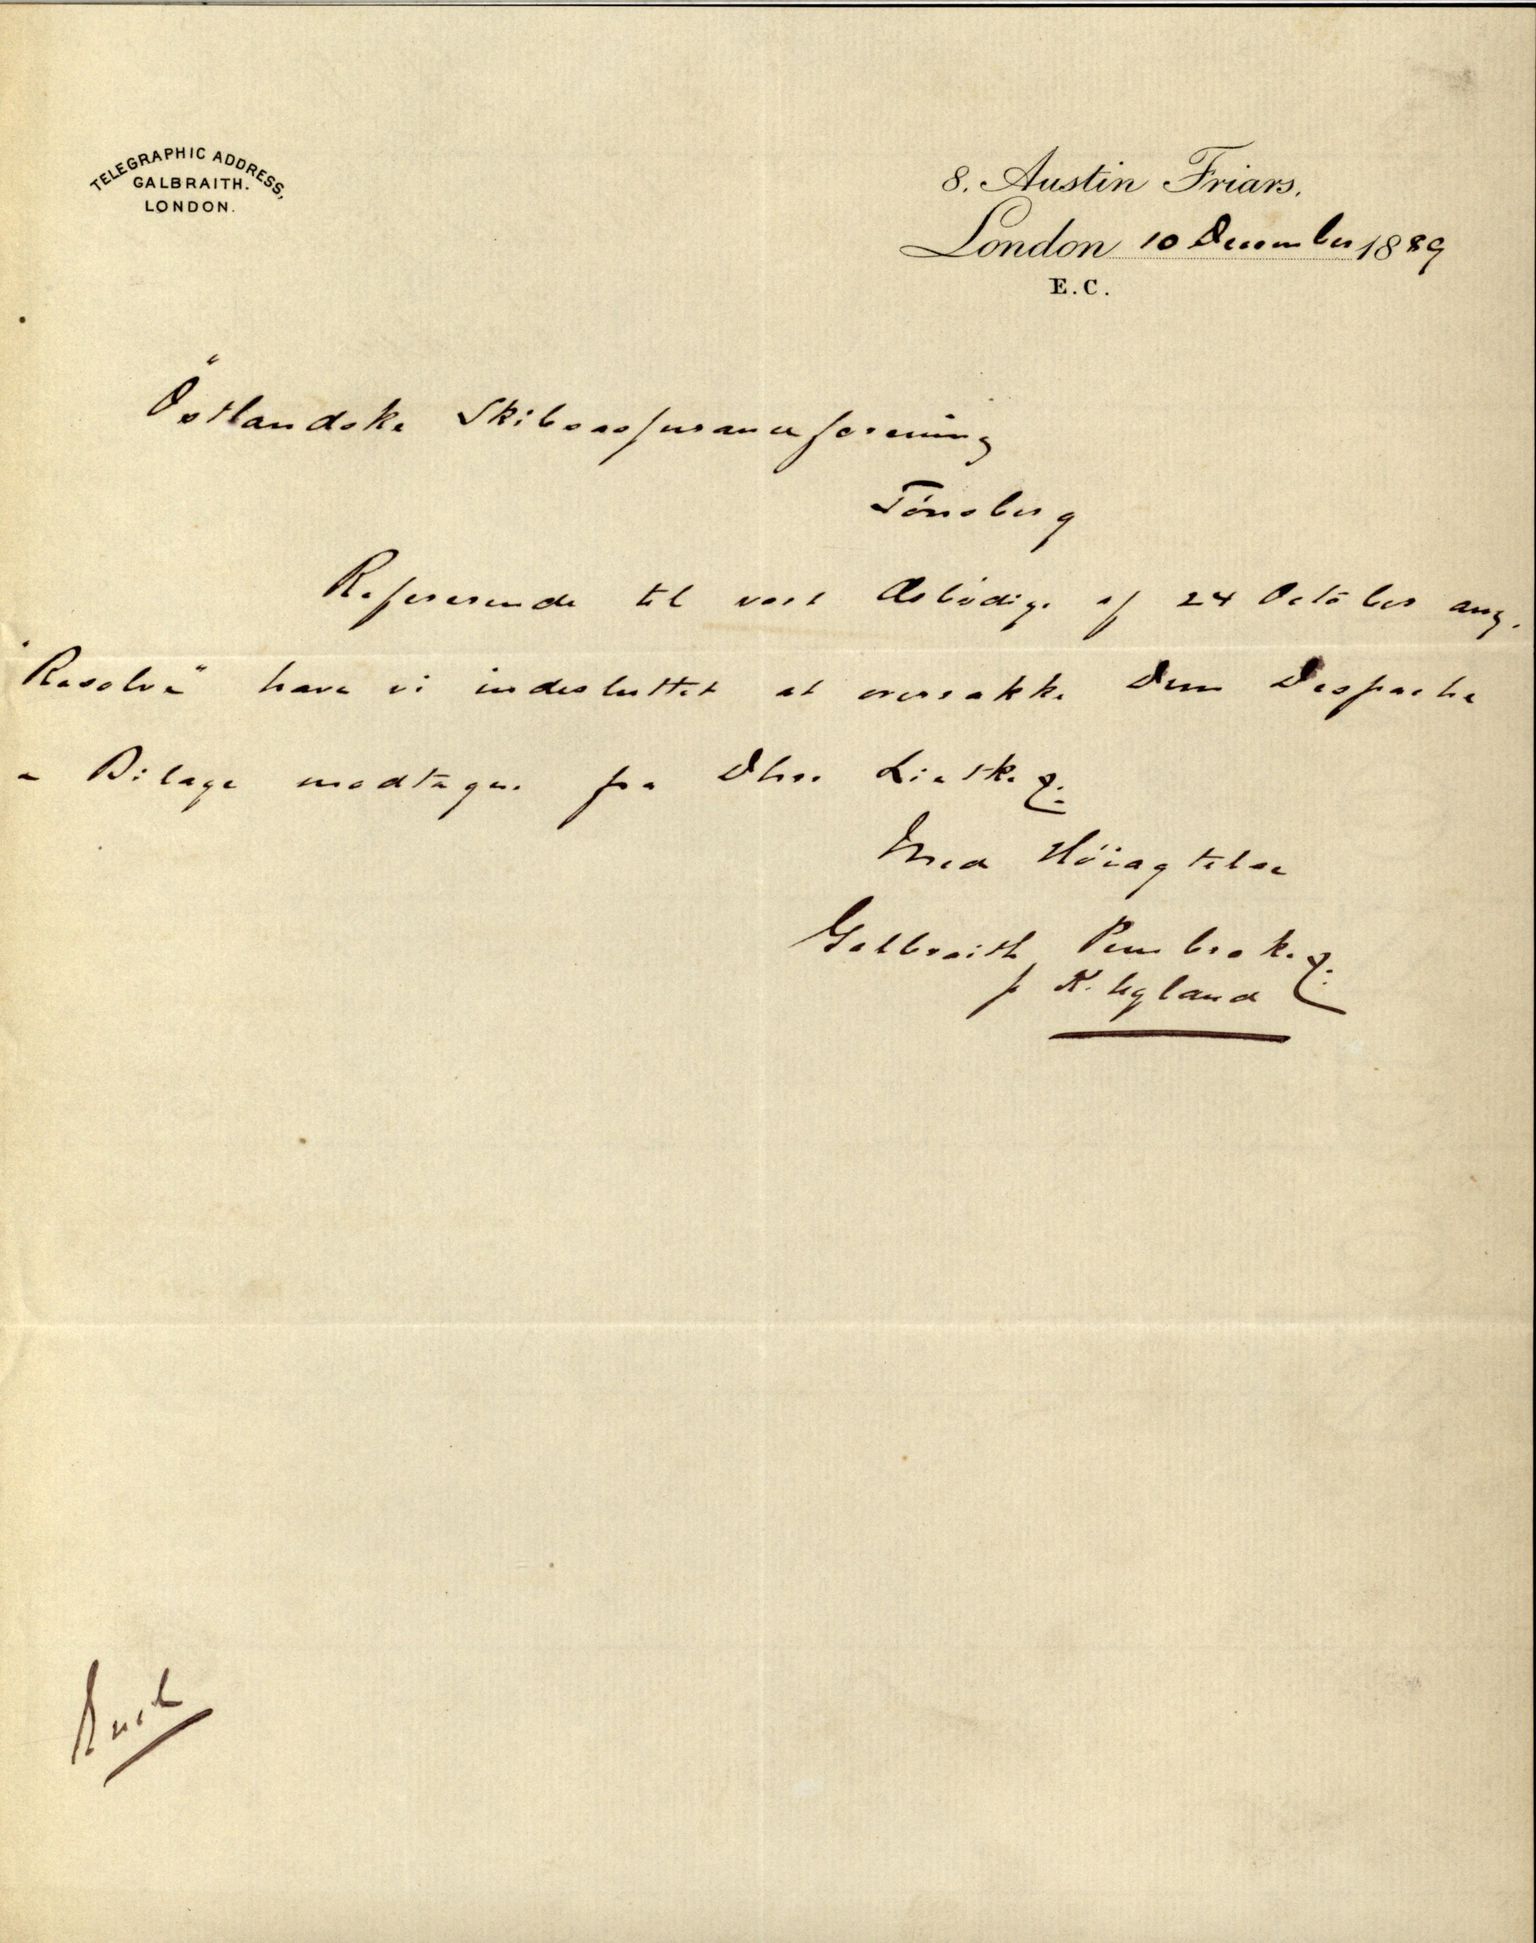 TELEGRAPHIC ADDRESS,
GALBRAITH.
LONDON.
8. Austin Friars,
London 10 December 1889
E.C.
Östlandske Skibsassuranceforening
Tönsberg
Refererende til vort Ærbödige af 24 October ang.
"Resolve" have vi indesluttet at oversække Dem Despache
& Bilage modtagne fra Dhrr Lietke
Med Höiagtelse
Galbraith Pembroke
p K. Ugland